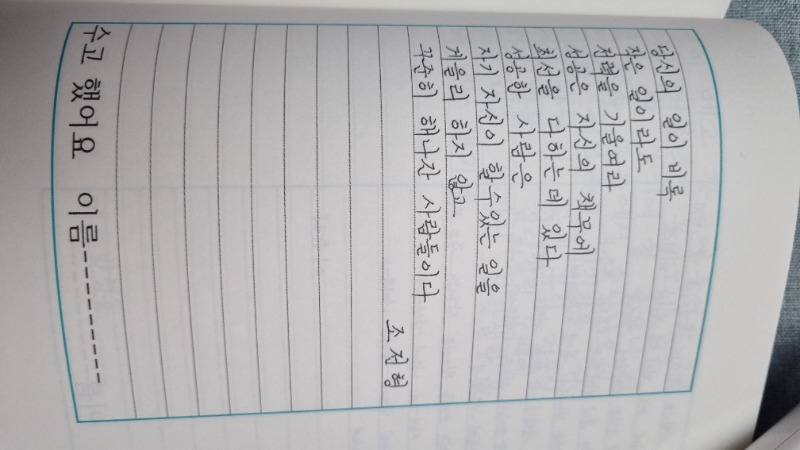 당신의 일이 비록
작은 일이라도
전력을 기울여라
성공은 자신의
최선을 다하는데 있다
성공한 사람은
자기 자신이 할수있는 일을
게을리 하지 않고
꾸준히 해나간 사람들이다
수고 했어요 이름----------